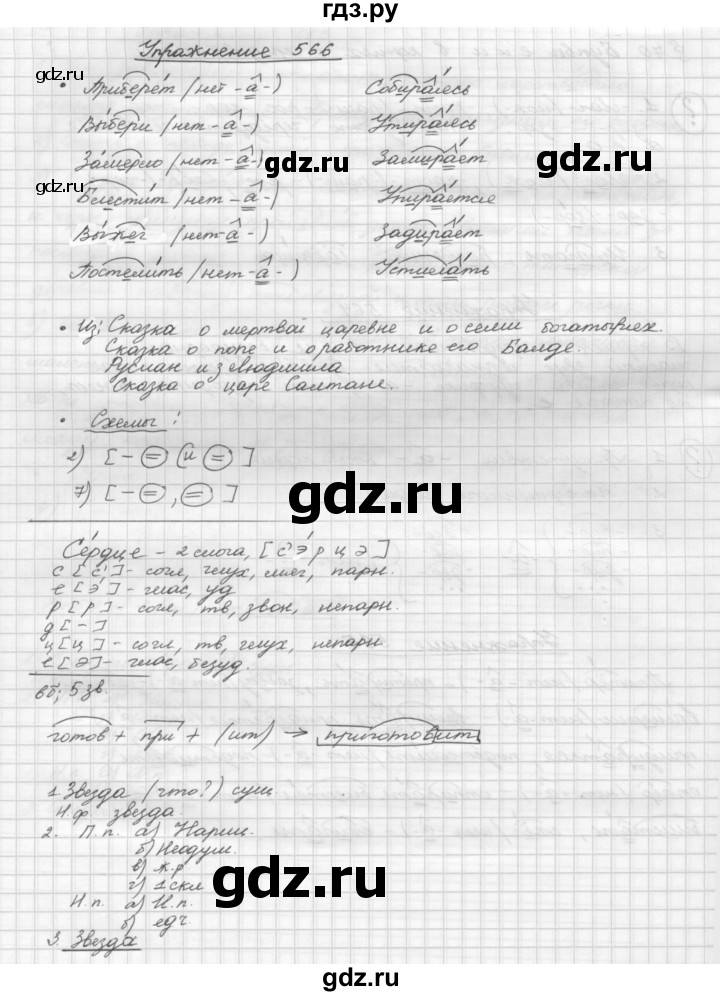 гдз.ру
Упражнение 566
• Приберёт /нет -а-) Собиралась
Выбери /нет -а-) Утиралась
Замерло /нет -а-) Замирает
Блестит /нет -а-) Упирается
Выжег /нет -а-) Задирает
Постелить /нет -а-) Устилать
• Из: Сказка о мертвой царевне и о семи богатырях.
Сказка о попе и о работнике его Балде.
Руслан и Людмила
Сказка о царе Салтане.
• Схемы:
2) [- = (и =]
7) [- =, =]
Сердце - 2 слога, [с'э́рцэ]
с [с'] - согл, глух, мяг, парн.
е [э́] - глас, уд
р [р] - согл, тв, звон, непарн.
д [-]
ц [ц] - согл, тв, глух, непарн
е [э] - глас, безуд.
6б; 5 зв.
готов + при + (ит) → приготовит
1. Звезда (что?) сущ
Н.ф звезда.
2. П.п. а) Нариц.
б) Неодуш.
в) ж.р
г) 1 скл
Н.п. а) И.п.
б) ед.ч.
3. Звезда
gdz.ru
gdz.ru
gdz.ru
gdz.ru
gdz.ru
gdz.ru
gdz.ru
gdz.ru
gdz.ru
gdz.ru
gdz.ru
gdz.ru
gdz.ru